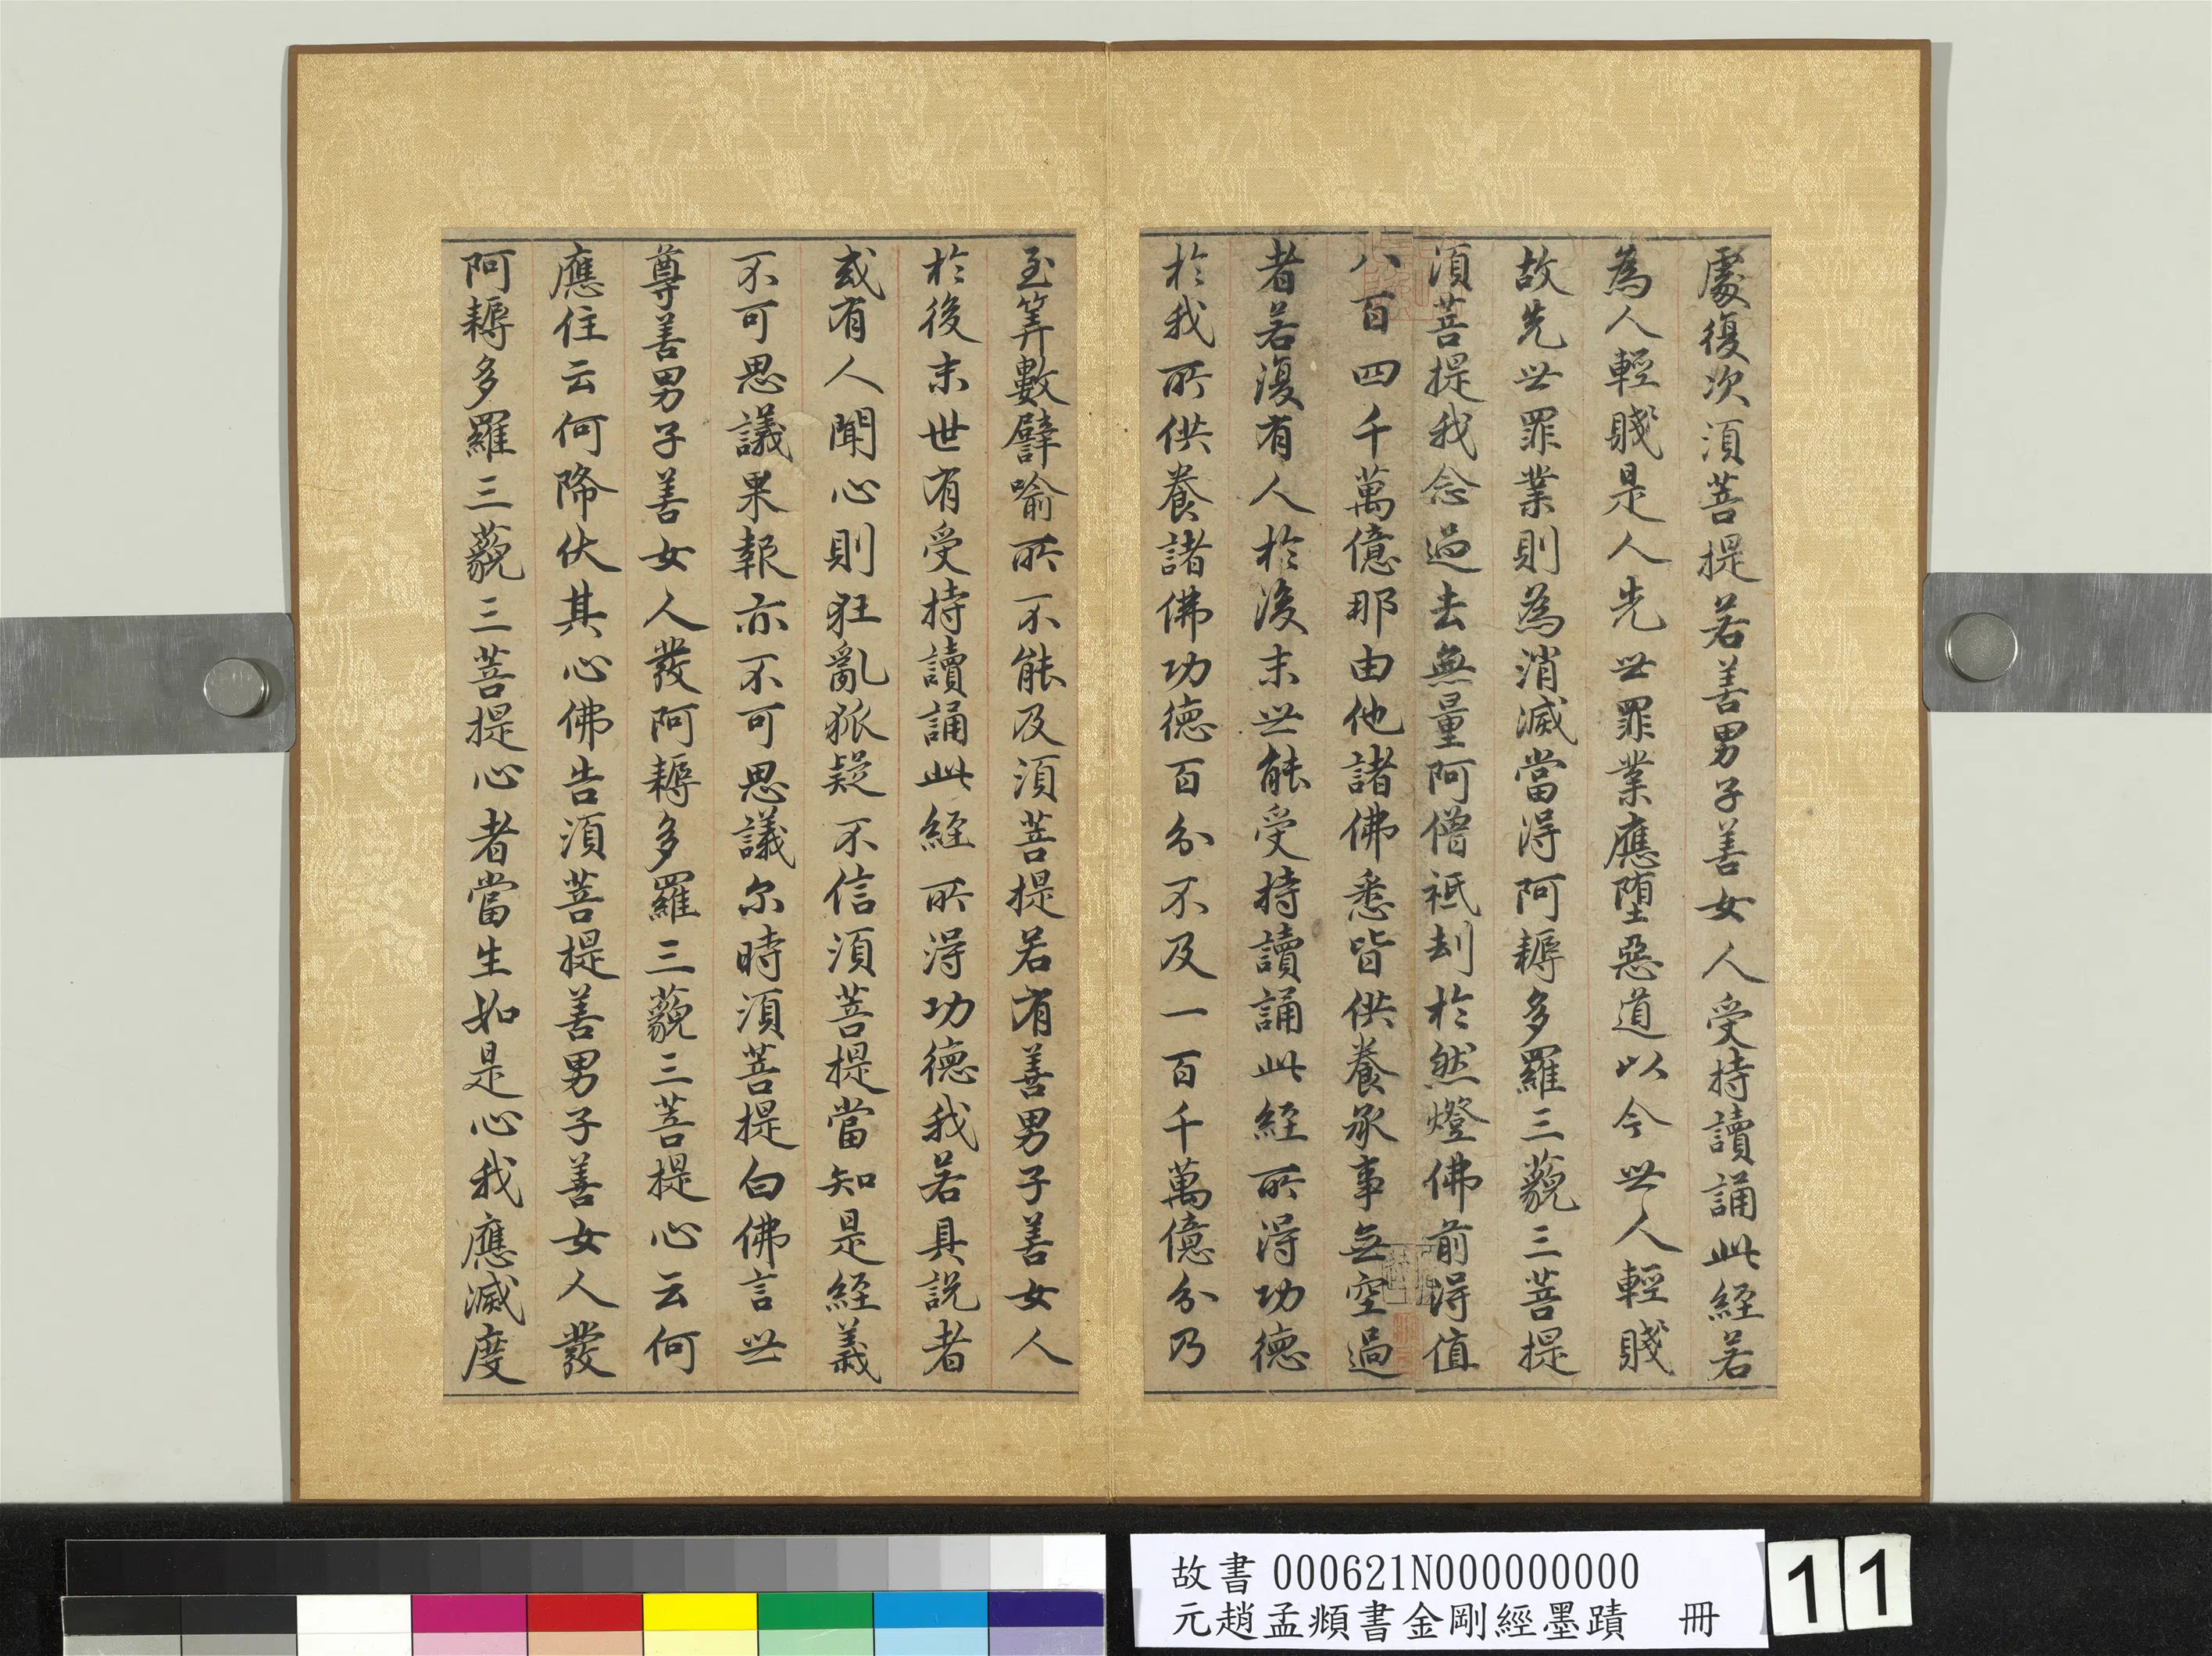 處復次須菩提若善男子善女人受持讀誦此經若
為人輕賤是人先世罪業應墮惡道以今世人輕賤
故先世罪業則為消滅當得阿耨多羅三藐三菩提
須菩提我念過去無量阿僧祇刦於然燈佛前得值
八百四千萬億那由他諸佛悉皆供養承事無空過
者若復有人於後末世能受持讀誦此經所得功德
於我所供養諸佛功德百分不及一百千萬億分乃
至筭數譬喻所不能及須菩提若有善男子善女人
於後末世有受持讀誦此經所得功德我若具説者
或有人聞心則狂亂狐疑不信須菩提當知是經義
不可思議果報亦不可思議尔時須菩提白佛言世
尊善男子善女人發阿耨多羅三藐三菩提心云何
應住云何降伏其心佛告須菩提善男子善女人發
阿耨多羅三藐三菩提心者當生如是心我應滅度
故書 000621N000000000
元趙孟頫書金剛經墨蹟 冊
11